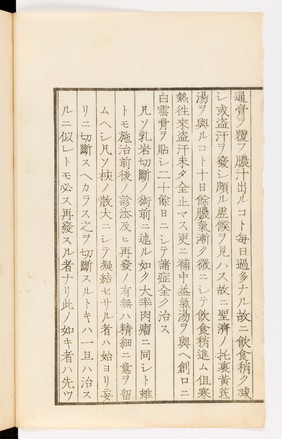 逼膏ヲ覆フ膿汁出ルコト毎日過多ナル故ニ飲食稍ク減
シ或盗汗ヲ発シ頗ル虚候ヲ見ハス故ニ聖済ノ托裏黄芪
湯ヲ與ルコト十日餘膿氣漸ク微ニシテ飲食稍進ム但寒
熱徃來盗汗未タ全止マス更ニ補中益氣湯ヲ與ヘ創口ニ
白雲膏ヲ貼シ二十餘日ニシテ諸症全ク治ス
凡ソ乳岩切斷ノ術前ニ述ル如ク大率肉瘤ニ同シト雖
トモ施治前後ノ診法及ヒ再發ノ有無ハ精細ニ意ヲ留
ムヘシ凡ソ核ノ散大ニシテ凝結セサル者ハ始ヨリ妄
リニ切斷スヘカラス之ヲ切斷スルトキハ一旦ハ治ス
ルニ似レトモ必ス再發スル者ナリ此ノ如キ者ハ先ツ